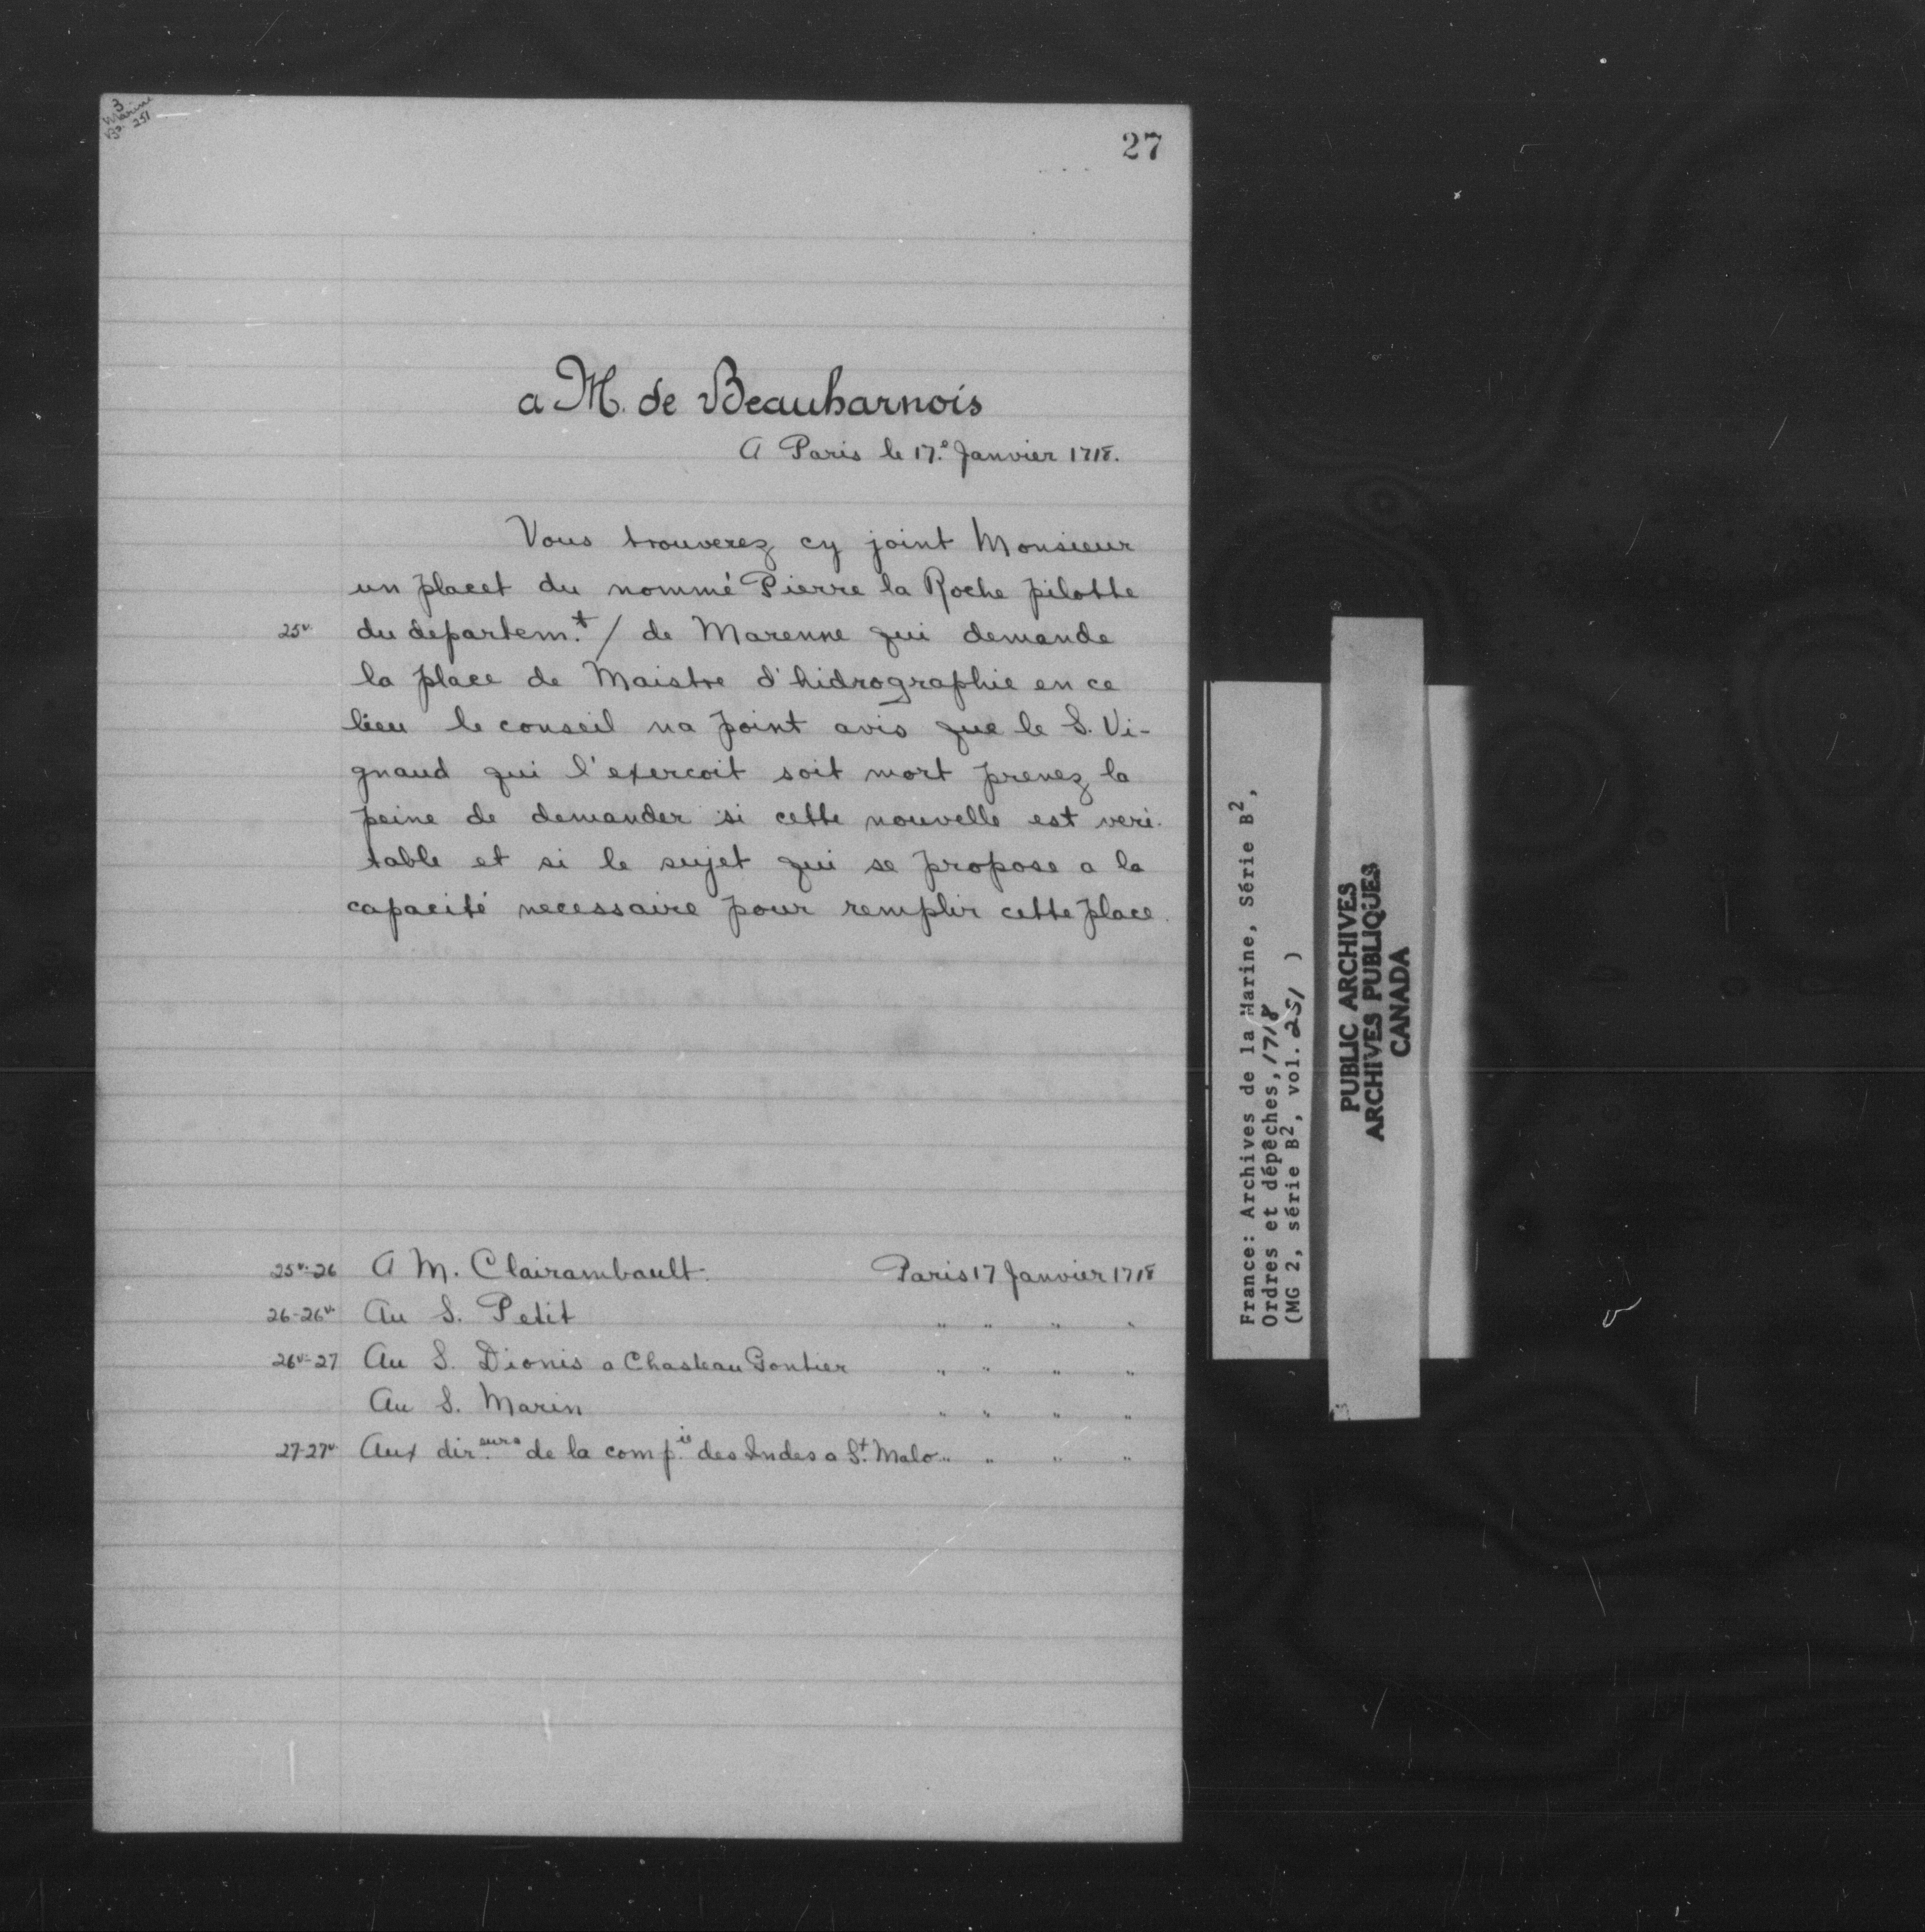 3
Marine
B2. 251
27
a M. de Beauharnois
A Paris le 17.e Janvier 1718.
Vous trouverez cy joint Monsieur
un placet du nommé Pierre la Roche pilotte
25v. du departem.t / de Marenne qui demande
la place de Maistre d'hidrographie en ce
lieu le conseil na point avis que le S. Vi-
gnaud qui l'exercoit soit mort prenez la
peine de demander si cette nouvelle est veri-
table et si le sujet qui se propose a la
capacité necessaire pour remplir cette place.
25v.-26 A M. Clairambault. Paris 17 Janvier 1718
26-26v. Au S. Petit " " " "
26v-27 Au S. Dionis a Chasteau Gontier " " " "
Au S. Marin " " " "
27-27v. Aux dir.eurs de la comp.ie des Indes a St. Malo " " " "
France: Archives de la Marine, Série B2,
Ordres et dépêches, 1718
(MG 2, série B2, vol. 251 )
PUBLIC ARCHIVES
ARCHIVES PUBLIQUES
CANADA